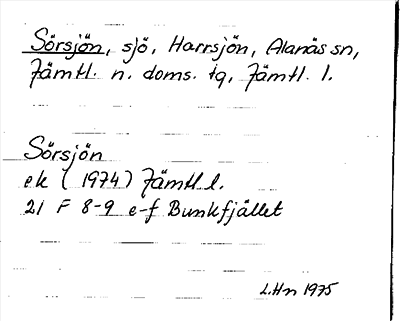 Sörsjön, sjö, Harrsjön, Alanäs sn,
Jämtl. n. doms. tg, Jämtl. l.
Sörsjön
ek (1974) Jämtl l.
21 F 8-9 e-f Bunkfjället
L.Hn 1975